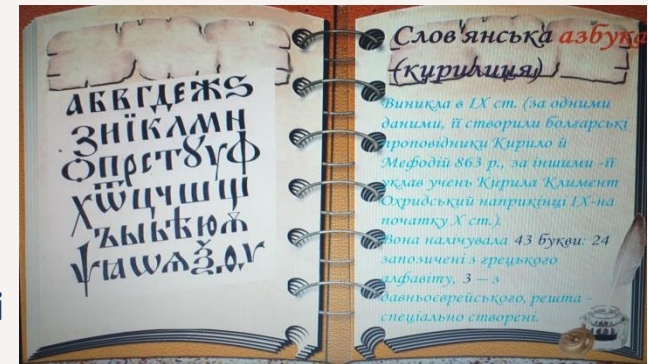 АБВГДЕЖЅ
ЗИЇКЛМН
ОПРСТꙊУФ
ХѾЦЧШЩ
ЪЫЬѢЮѪ
ѰѨѠѦѮѲѴ
і
Слов'янська азбука
(кирилиця)
Виникла в IX ст. (за одними
даними, її створили болгарські
проповідники Кирило й
Мефодій 863 р., за іншими -її
уклав учень Кирила Климент
Охридський наприкінці IX-на
початку X ст.).
Вона налічувала 43 букви: 24
запозичені з грецького
алфавіту, 3 – з
давньоєврейського, решта -
спеціально створені.